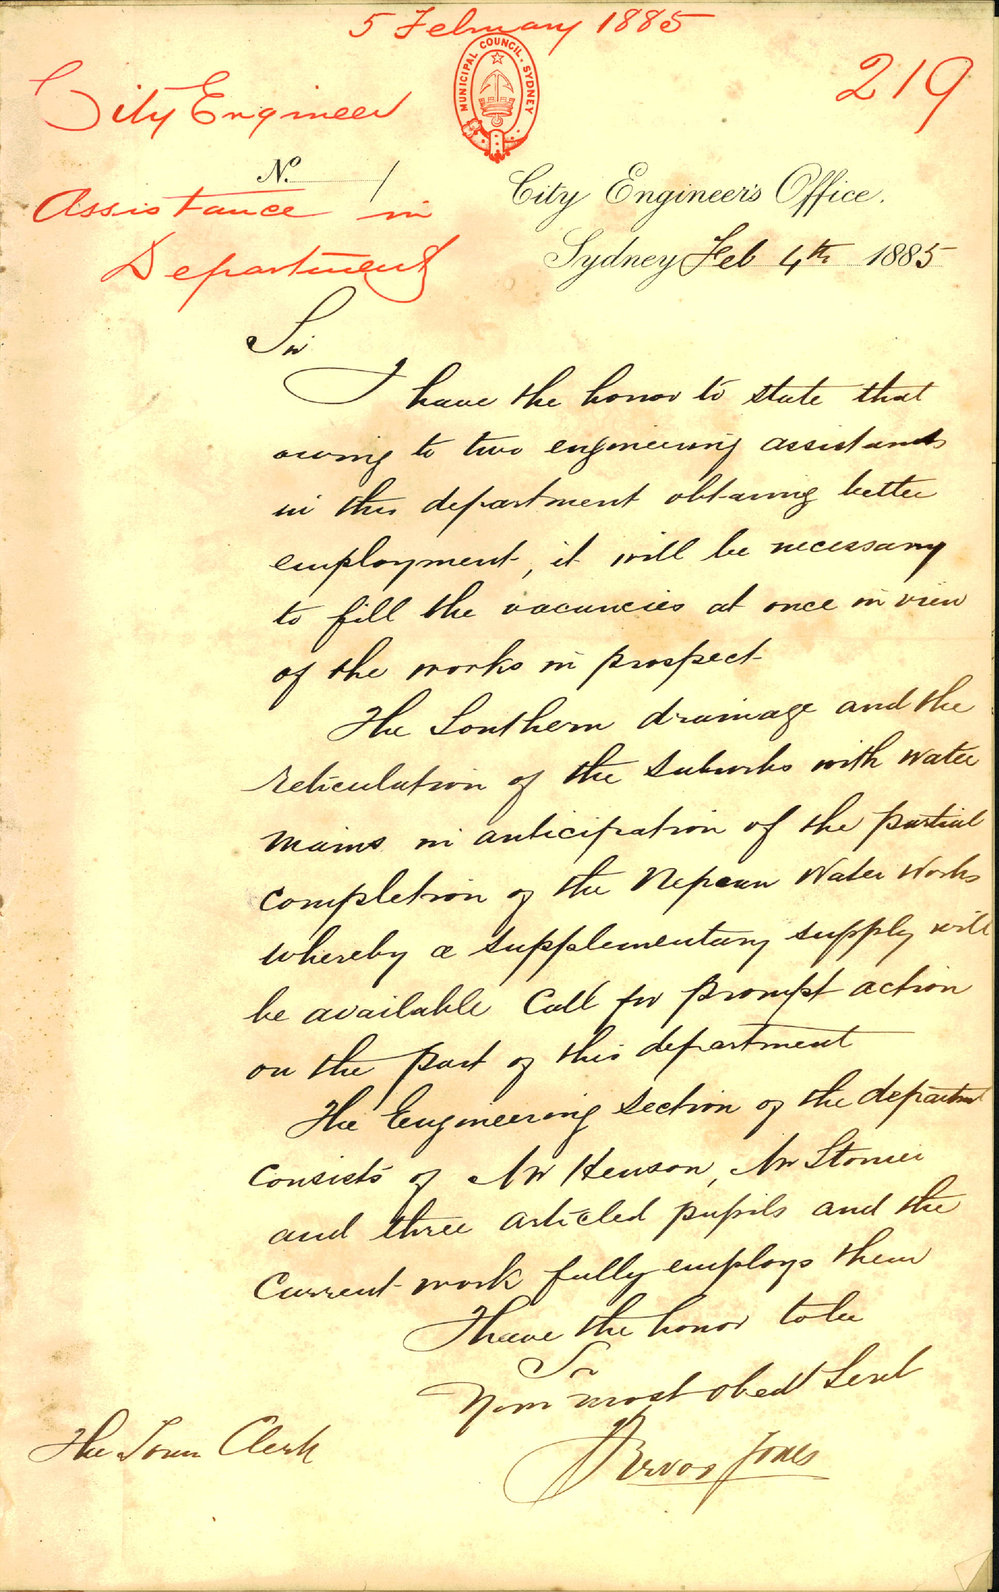 5 February 1885
MUNICIPAL COUNCIL. SYDNEY
219
City Engineer
No. /
Assistance in
Department
City Engineer's Office.
Sydney Feb 4th 1885
Sir
I have the honor to state that
owing to two engineering assistants
in this department obtaining better
employment, it will be necessary
to fill the vacancies at once in view
of the works in prospect
The Southern drainage and the
reticulation of the suburbs with water
mains in anticipation of the partial
completion of the Nepean Water Works
whereby a supplementary supply will
be available Call for prompt action
on the part of this department
The Engineering Section of the departmt
consists of Mr Henson, Mr Stonier
and three articled pupils and the
current work fully employs them
I have the honor to be
Sir
Your most obedt Servt
Trevor Jones
The Town Clerk